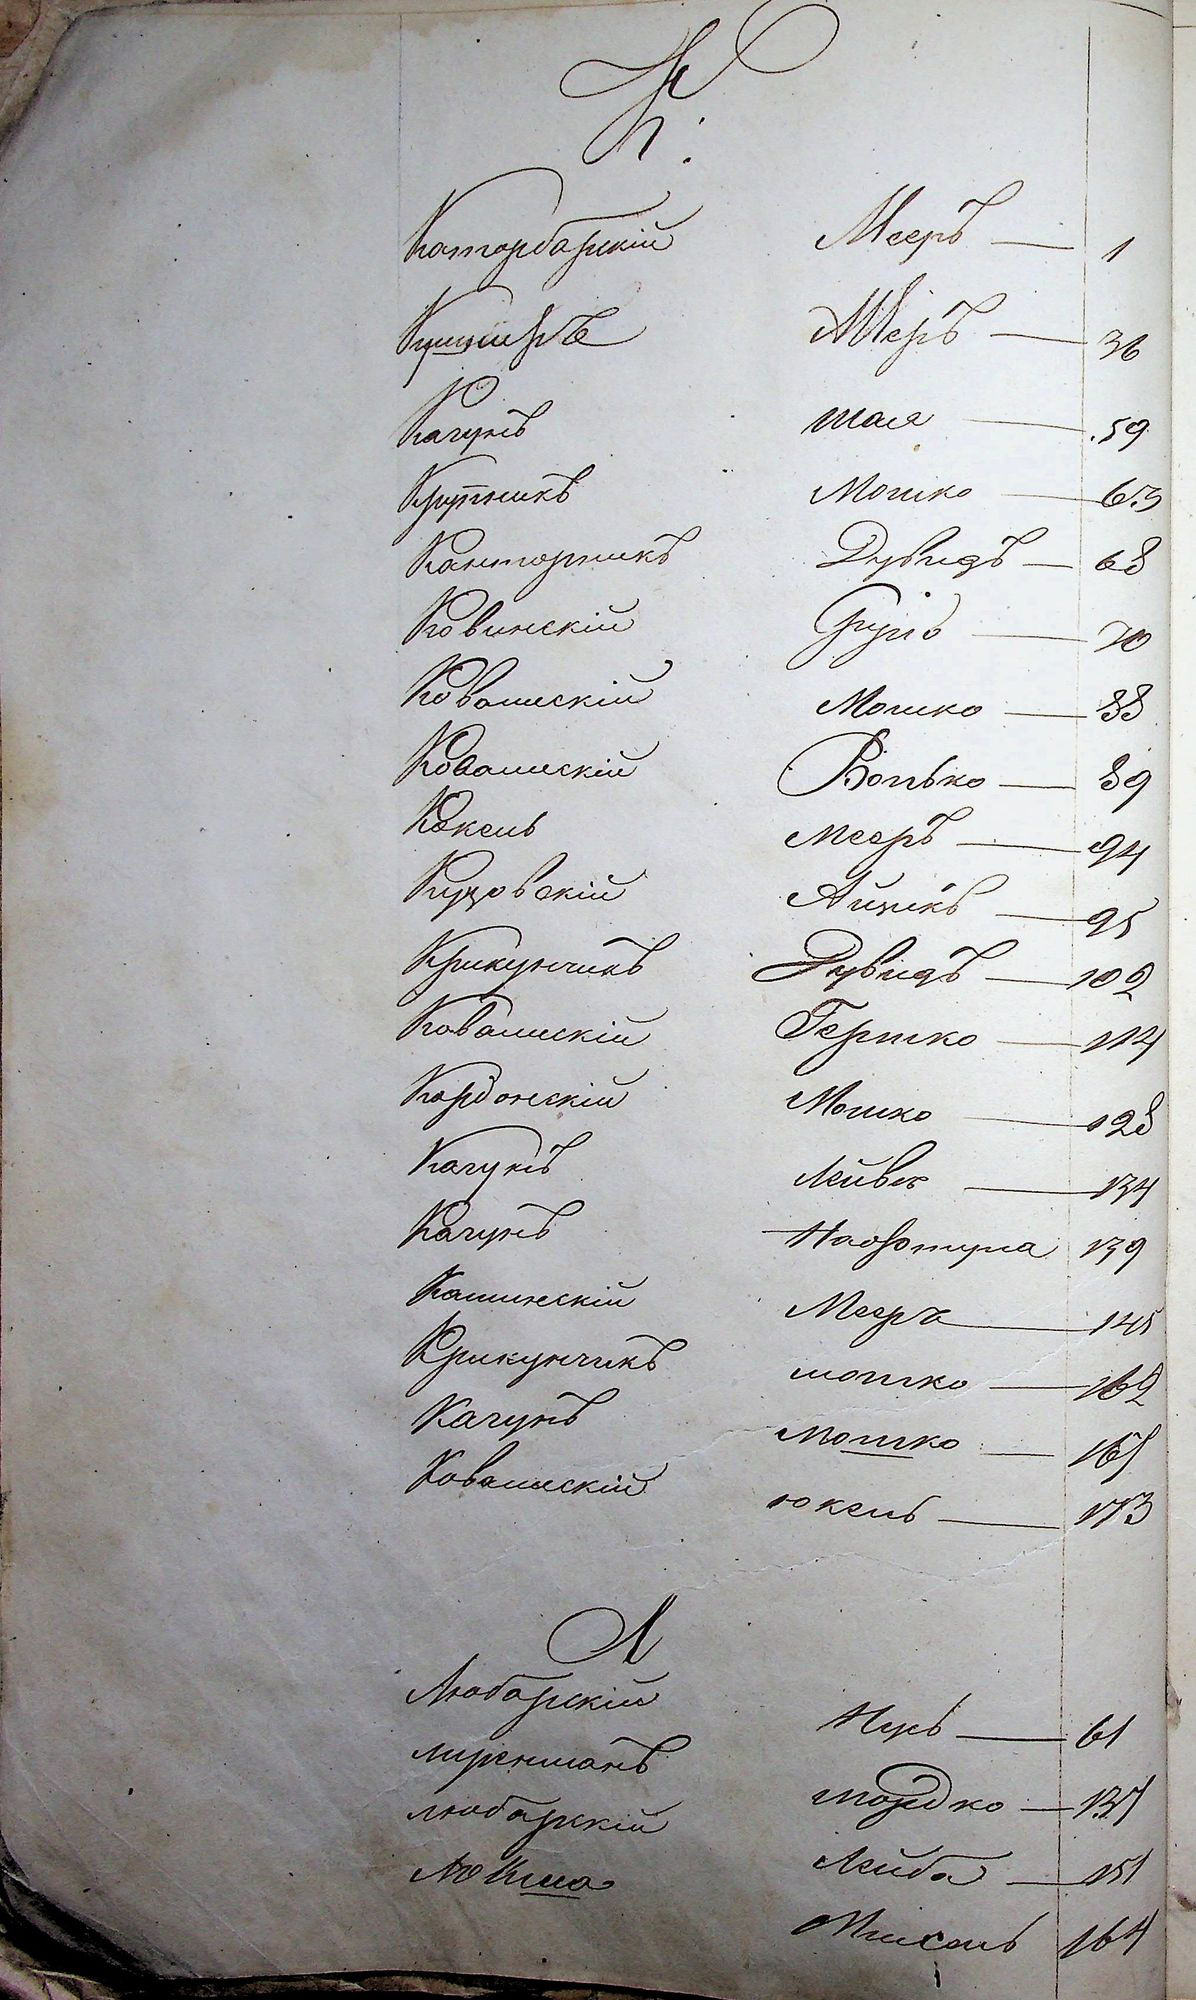 К:
Каторбарскій Мееръ — 1
Кушнеръ Меръ — 36
Кагунъ Шая — 59
Крупникъ Мошко — 63
Канторникъ Дувидъ — 68
Ковинскій Сруль — 70
Ковальскій Мошко — 88
Ковальскій Волько — 89
Кекель Мееръ — 94
Куцовскій Айзикъ — 95
Крикунчикъ Дувидъ — 102
Ковальскій Гершко — 114
Кордонскій Мошко — 128
Кагунъ Лейвек — 134
Кагунъ Нафтула 139
Калинскій Мееръ — 145
Крикунчикъ Мошко — 162
Кагунъ Мошко — 165
Ковальскій Юкель — 173
Л
Любарскій Нухъ — 61
Лиренманъ Мордко — 137
Любарскій Лейба — 151
Мисель 164